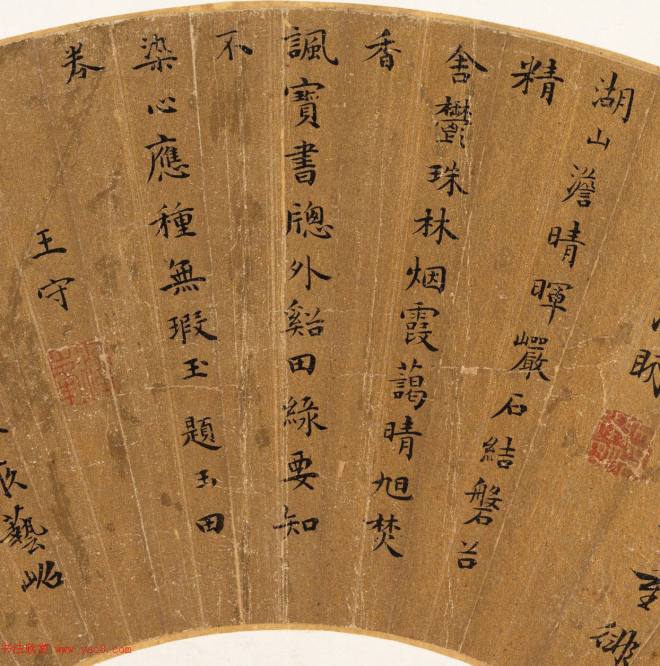 湖山澹晴暉巖石結磐谷
精
舍鬱珠林烟霞藹晴旭焚
香
諷寶書牕外谿田綠要知
不
染心應種無瑕玉題玉田
卷
王守
藝
书法欣赏 www.yac8.com